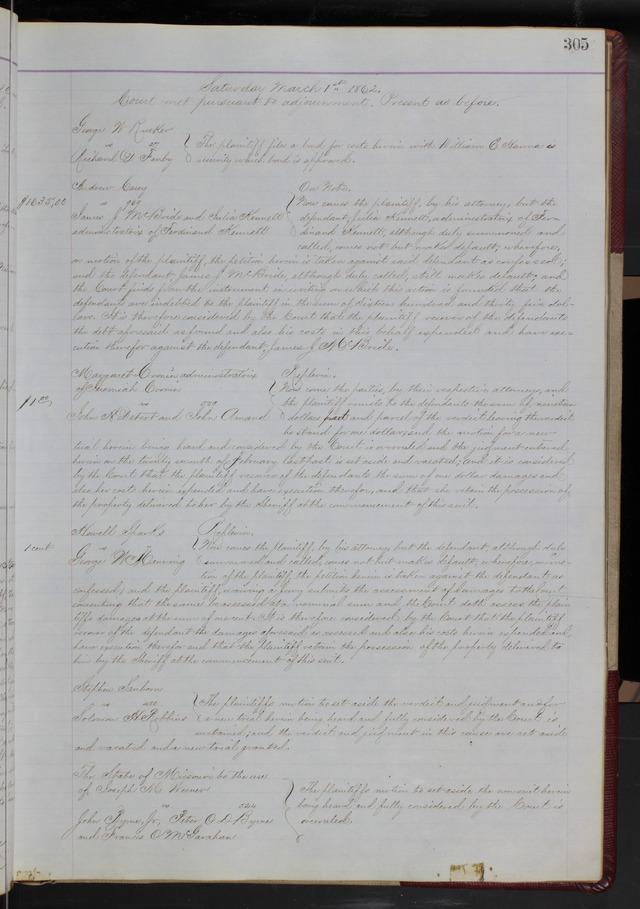 305
Saturday March 1st 1862.
Court met pursuant to adjournment. Present as before.
George W Rucker
vs
Richard D Fenby
The plaintiff files a bond for costs herein with William E Hanna as
security which bond is approved.
Andrew Casey
vs
James J McBride and Julia Kennett
administratrix of Ferdinand Kennett
$1635,00
On Note.
Now comes the plaintiff, by his attorney, but the
defendant, Julia Kennett, administratrix of Fer-
dinand Kennett, although duly summoned and
called, comes not but makes default; wherefore,
on motion of the plaintiff, the petition herein is taken against said defendant as confessed;
and the defendant James J McBride, although duly called, still makes default; and
the Court finds from the instrument in writing on which this action is founded that the
defendants are indebted to the plaintiff in the sum of sixteen hundred and thirty five dol-
lars. It is therefore considered by the Court that the plaintiff recover of the defendants
the debt aforesaid as found and also his costs in this behalf expended and have exe-
cution therefor against the defendant, James J McBride.
Margaret Cronin administratrix
of Jeremiah Cronin
vs
John H and John Amand
$1.00
Replevin.
Now come the parties, by their respective attorneys, and
the plaintiff remits to the defendants the sum of nineteen
dollars part and parcel of the verdict leaving the verdict
to stand for one dollar; and the motion for a new
trial herein being heard and considered by the Court is overruled and the judgment entered
herein on the twenty seventh of February last past is set aside and vacated; and it is considered
by the Court that the plaintiff recover of the defendants the sum of one dollar damages and
also her costs herein expended and have execution therefor, and that she retain the possession of
the property delivered to her by the Sheriff at the commencement of this suit.
Howell Sparks
vs
George W Henning
1 cent
Replevin.
Now comes the plaintiff, by his attorney, but the defendant, although duly
summoned and called, comes not but makes default; wherefore, on mo-
tion of the plaintiff, the petition herein is taken against the defendant as
confessed; and the plaintiff, waiving a jury submits the assessment of damages to the Court
consenting that the same be assessed at a nominal sum and the Court doth assess the plain-
tiffs damages at the sum of one cent. It is therefore considered by the Court that the plaintiff
recover of the defendant the damages aforesaid as assessed and also his costs herein expended and
have execution therefor and that the plaintiff retain the possession of the property delivered to
him by the Sheriff at the commencement of this suit.
Stephen Sanborn
vs
Solomon H Robbins
The plaintiffs motion to set aside the verdict and judgment and for
a new trial herein being heard and fully considered by the Court is
sustained; and the verdict and judgment in this cause are set aside
and vacated and a new trial granted.
The State of Missouri to the use
of Joseph M Weiner
vs
John Byrne, Jr, Peter O L Byrne
and Francis O McGarahan
The plaintiffs motion to set aside the nonsuit herein
being heard and fully considered by the Court is
overruled.